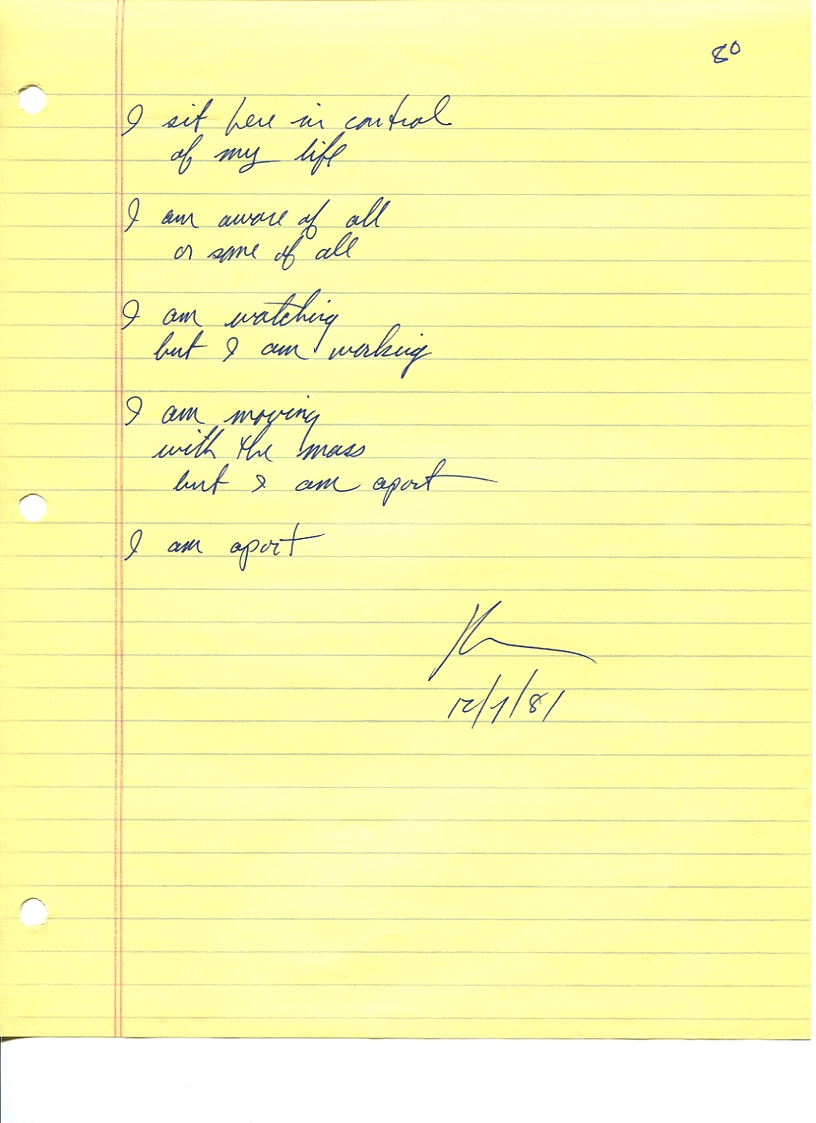 80
I sit here in control
of my life
I am aware of all
or some of all
I am watching
but I am working
I am moving
with the mass
but I am apart
I am apart
12/1/81